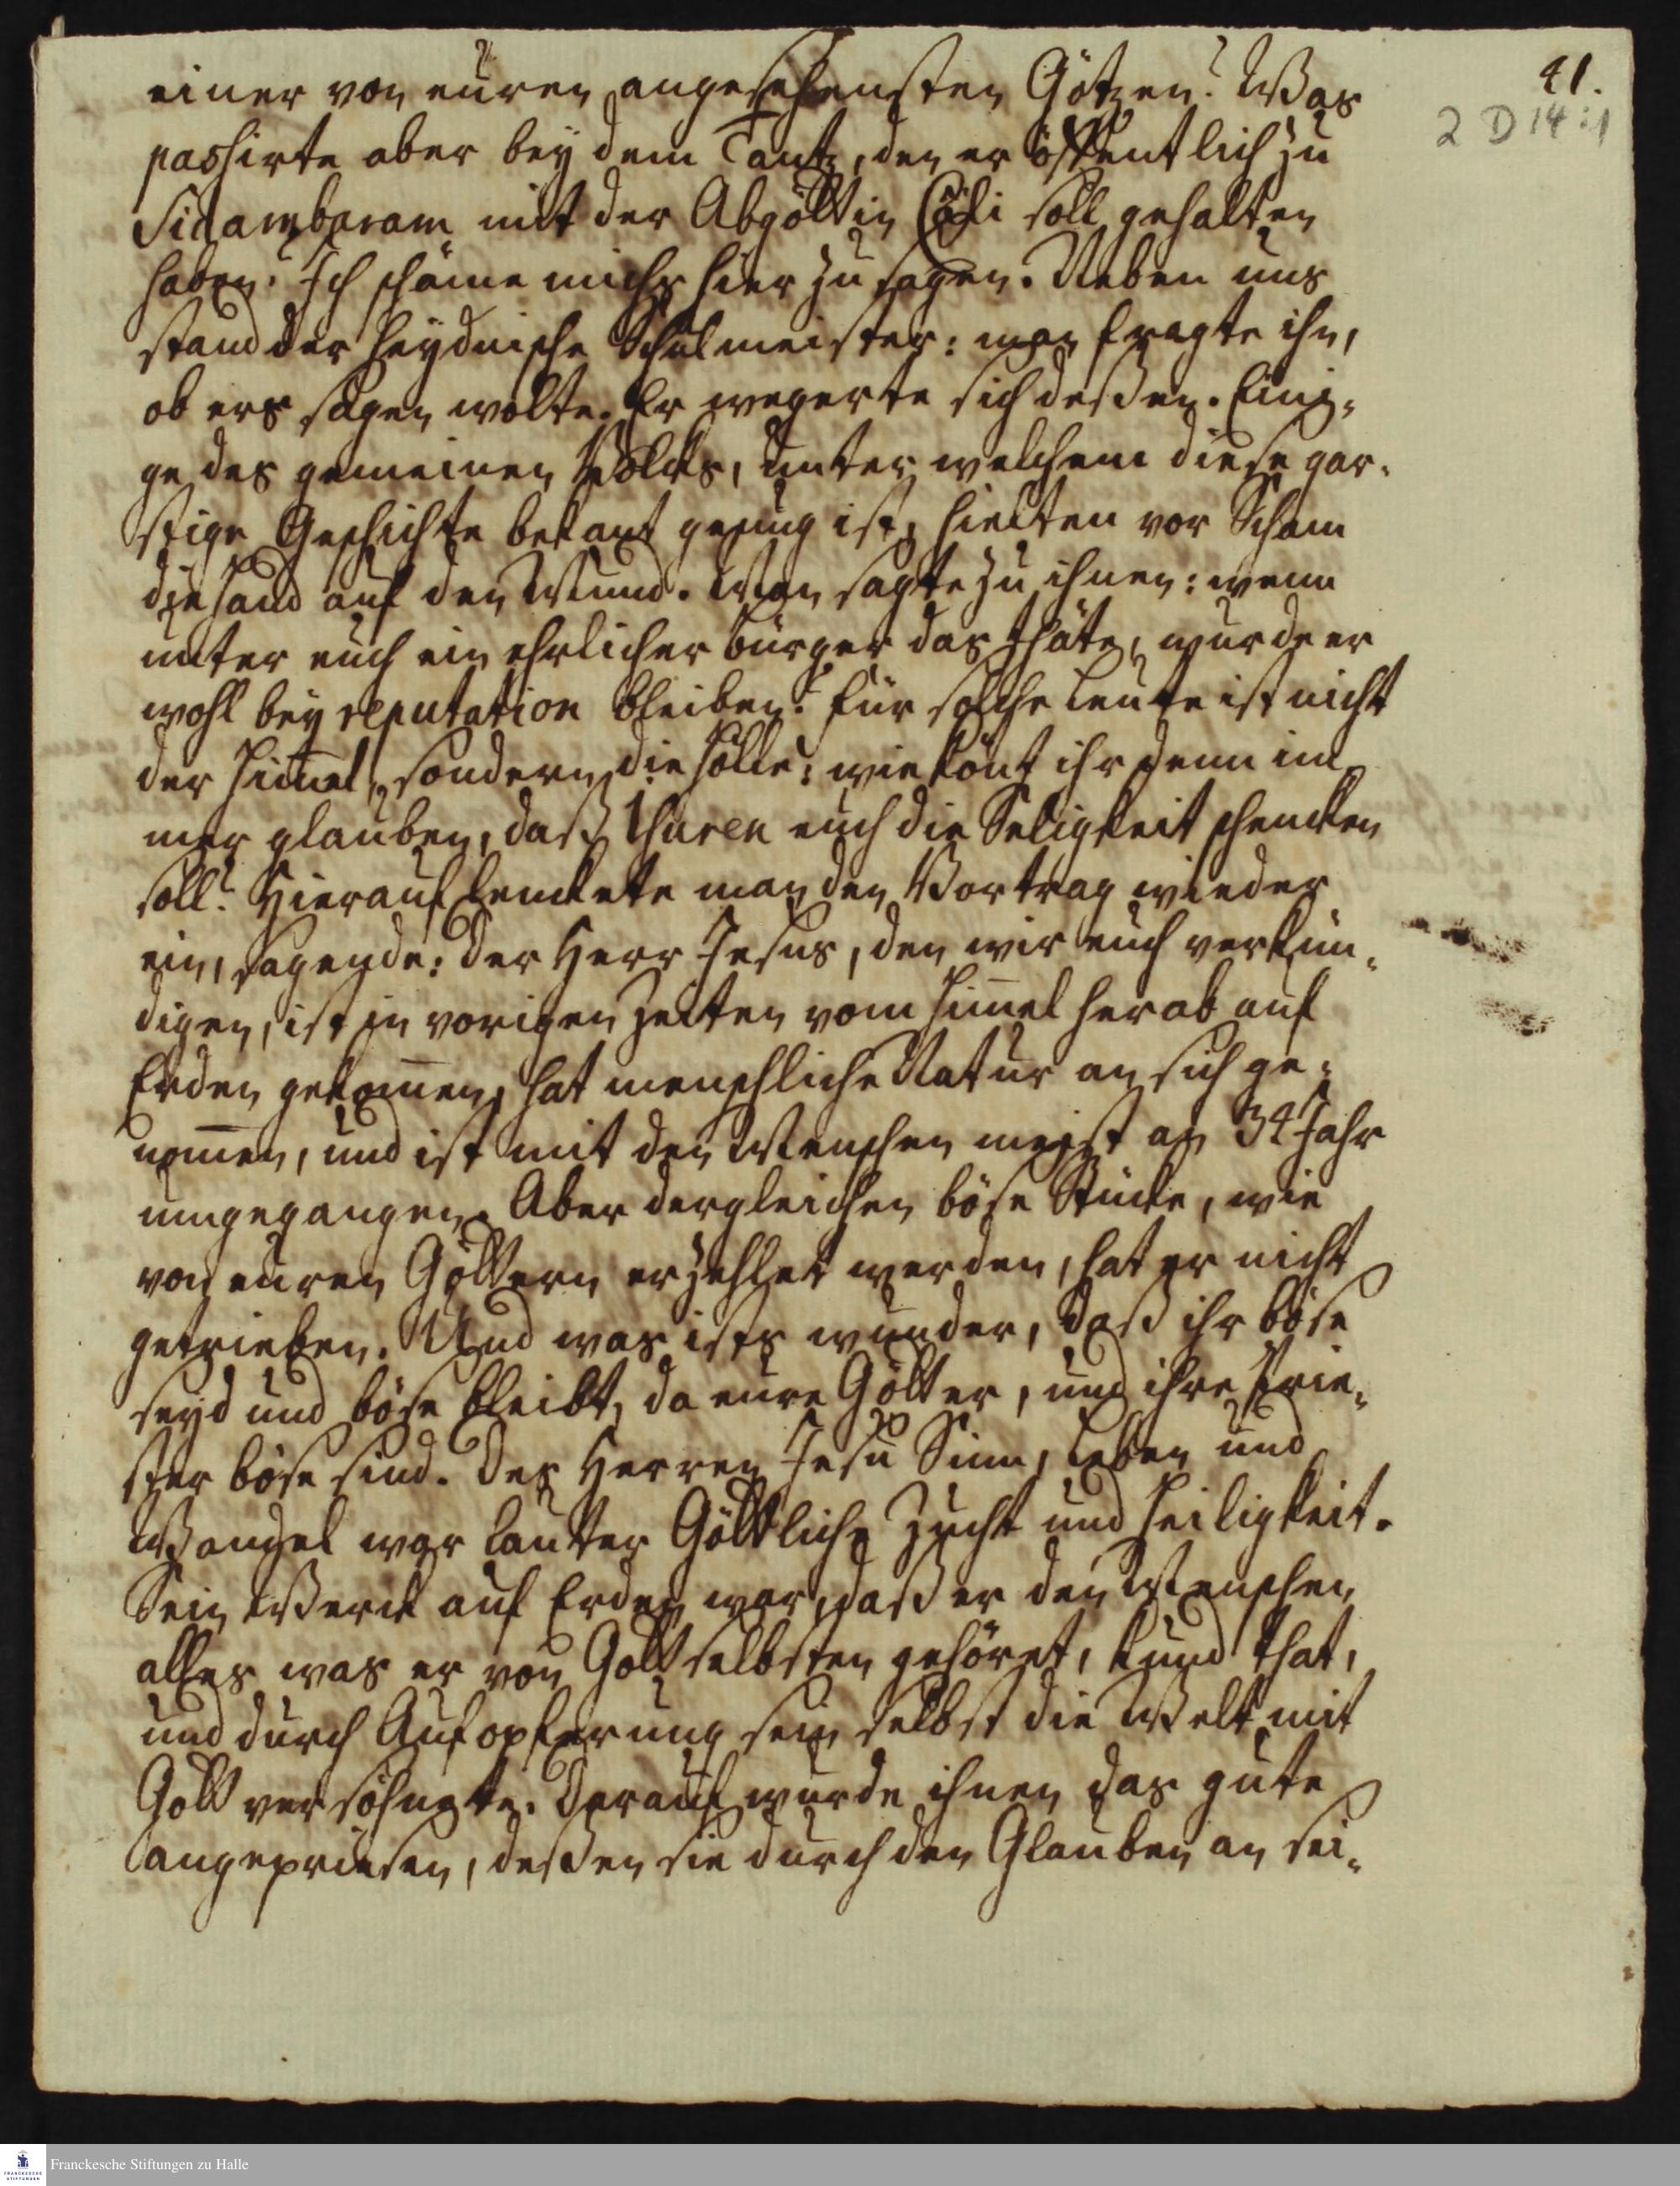 41.
2 D 14:1
einer von euren angesehensten Götzen? Was
passirte aber bey dem Tantz, den er öffentlich zu
Sidambaram mit der Abgöttin Cáli soll gehalten
haben? Ich schäme michs hier zu sagen. Neben uns
stand der heydnische Schulmeister: man fragte ihn,
ob ers sagen wolte. Er wegerte sich deßen. Eini-
ge des gemeinen Volcks, unter welchem diese gar-
stige Geschichte bekant genug ist, hielten vor Scham
die Hand auf den Mund. Man sagte zu ihnen: wenn
unter euch ein ehrlicher bürger das thäte, wurde er
wohl bey reputation bleiben? für solche Leute ist nicht
der Him̅el, sondern die Hölle: wie könt ihr denn im
mer glauben, daß Ihuren euch die Seligkeit schencken
soll? Hierauf lenckete man den Vortrag wieder
ein, sagende: Der Herr Jesus, den wir euch verkün-
digen, ist in vorigen Zeiten vom Him̅el herab auf
Erden gekom̅en, hat menschliche Natur an sich ge-
nom̅en, und ist mit den Menschen meist an 34 Jahr
umgegangen. Aber dergleichen böse Stücke, wie
von euren Göttern erzehlet werden, hat er nicht
getrieben. Und was ists wunder, daß ihr böse
seyd und böse bleibt, da eure Götter, und ihre Prie-
ster böse sind. Des Herren Jesu Sinn, Leben und
Wandel war lauter Göttliche Zucht und Heiligkeit.
Sein Werck auf Erden war, daß er den Menschen
alles was er von Gott selbsten gehöret, kund that,
und durch Aufopferung sein selbst die Welt mit
Gott versöhnete. Darauf wurde ihnen das gute
angepriesen, deßen sie durch den Glauben an sei-
Franckesche Stiftungen zu Halle
FRANCKESCHE
STIFTUNGEN